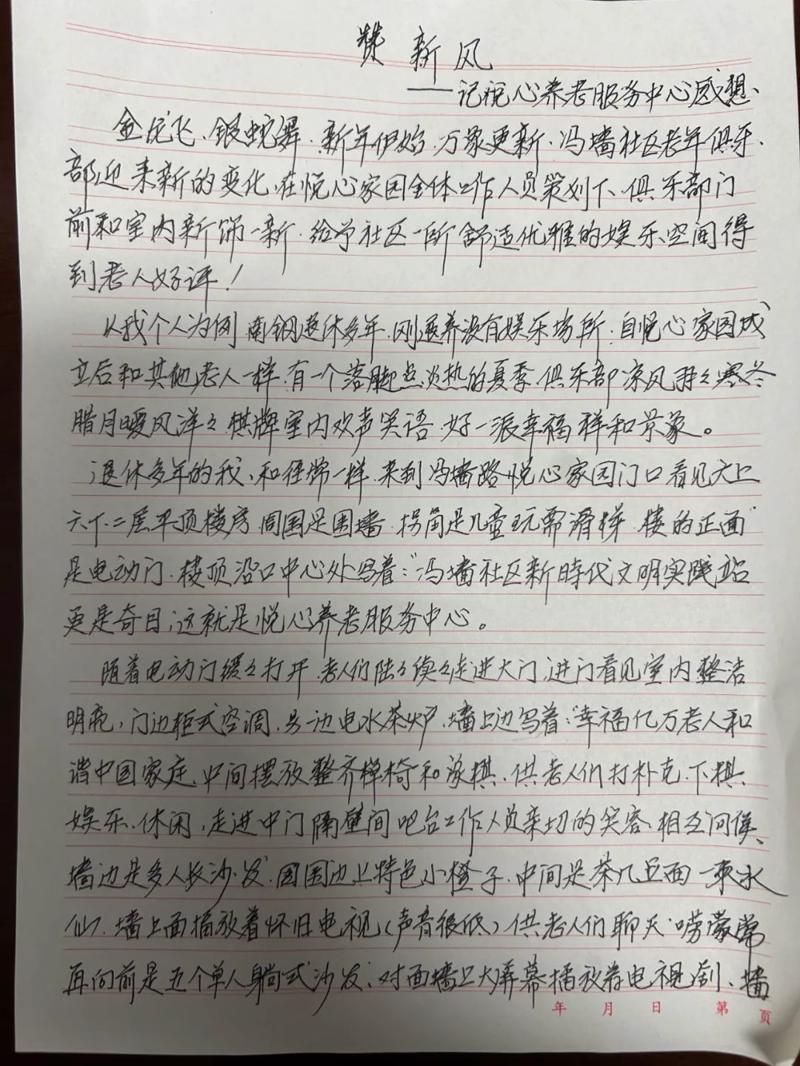 赞新风
——记悦心养老服务中心感想、
金龙飞、银蛇舞、新年伊始、万象更新、冯墙社区老年俱乐、
部迎来新的变化、在悦心家园全体工作人员策划下、俱乐部门
前和室内新饰一新、给予社区一所舒适优雅的娱乐空间得
到老人好评!
以我个人为例 南钢退休多年、刚退养没有娱乐场所、自悦心家园成
立后和其他老人一样、有一个落脚点炎热的夏季、俱乐部凉风习々寒冬
腊月暖风洋々棋牌室内欢声笑语、好一派幸福祥和景象。
退休多年的我、和往常一样、来到冯墙路悦心家园门口看见大上
六下、二层平顶楼房、周围是围墙、拐角是儿童玩需滑梯、楼的正面
是电动门、楼顶沿口中心处写着:“冯墙社区新時代文明实践站
更是奇目、这就是悦心养老服务中心。
随着电动门缓々打开、老人们陆々续々走进大门、进门看见室内整洁
明亮,门边柜式空调、另一边电水茶炉、墙上边写着:“幸福亿万老人和
谐中国家庭、中间摆放整齐棹椅和象棋、供老人们打扑克、下棋、
娱乐、休闲,走进中门隔壁间吧台工作人员亲切的笑容、相互问候、
墙边是多人长沙发、周围边上特色小橙子、中间是茶几上面一束水
仙、墙上面播放着怀旧电视(声音很低)供老人们聊天、唠家常
再向前是五个单人躺式沙发、对面墙上大屏幕播放着电视剧、墙
年 月 日 第 页